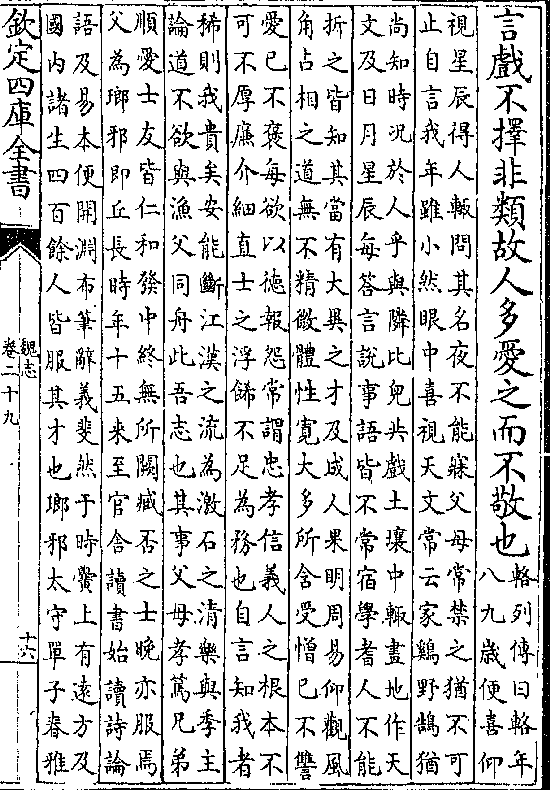 言戲不擇非類故人多愛之而不敬也輅列傳曰輅年
八九歲便喜仰
視星辰得人輙問其名夜不能寐父母常禁之猶不可
止自言我年雖小然眼中喜視天文常云家鷄野鵠猶
尚知時況於人乎與隣比兒共戲土壤中輙畫地作天
文及日月星辰每答言說事語皆不常宿學耆人不能
折之皆知其當有大異之才及成人果明周易仰觀風
角占相之道無不精微體性寛大多所含受憎已不讐
愛已不褒每欲以德報怨常謂忠孝信義人之根本不
可不厚廉介細直士之浮餙不足為務也自言知我者
稀則我貴矣安能斷江漢之流為激石之清樂與季主
論道不欲與漁父同舟此吾志也其事父母孝篤兄弟
順愛士友皆仁和發中終無所闕臧否之士晚亦服焉
父為瑯邪即丘長時年十五来至官舍讀書始讀詩論
語及易本便開淵布筆辭義斐然于時黌上有逺方及
國内諸生四百餘人皆服其才也瑯邪太守單子春雅
欽定四庫全書
魏志
卷二十九
十六